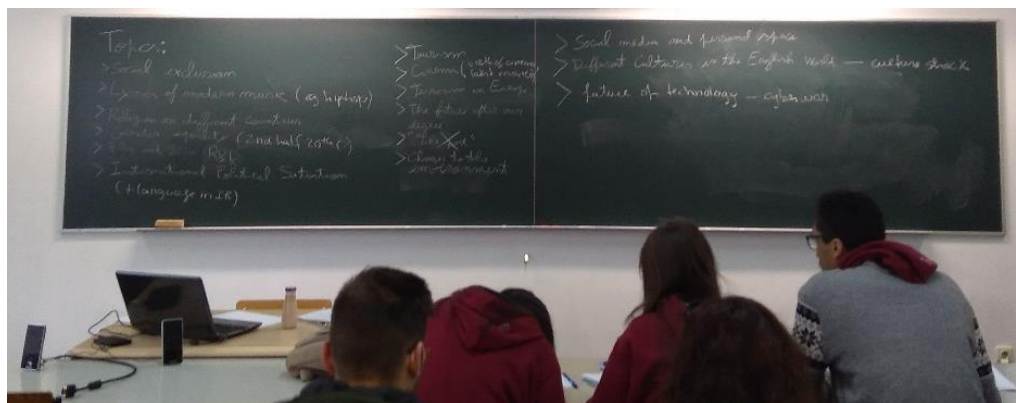 Topics:
> Social exclusion
> Lyrics of modern music (eg hiphop)
> Religion in different countries
> Gender equality (2nd half 20th c.)
> International Political Situation
(+ language in IR)
> Tourism
> Cinema
> Terrorism in Europe
> The future after our
degree
>
> Changes to the
environment
> Social media and personal space
> Different Cultures in the English World — culture shock
> future of technology — cyberwar